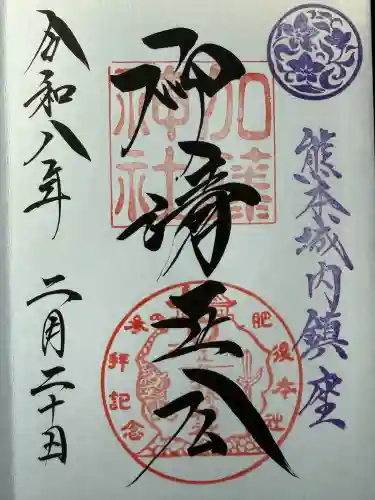 熊本城内鎮座
加藤
神社
仰清正公
肥後本社
参拝記念
令和八年 二月二十日